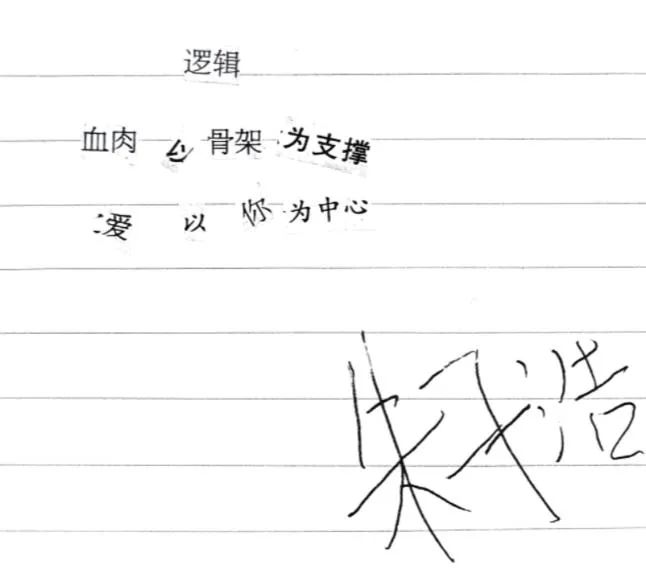 逻辑
血肉 以 骨架 为支撑
爱 以 你 为中心
浩